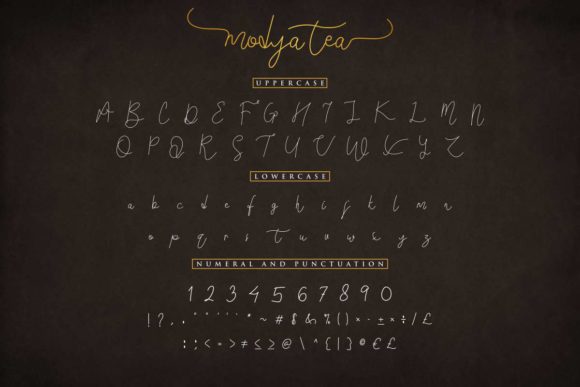 modya tea
UPPERCASE
A B C D E F G H I J K L M N
O P Q R S T U V W X Y Z
LOWERCASE
a b c d e f g h i j k l m n
o p q r s t u v w x y z
NUMERAL AND PUNCTUATION
1 2 3 4 5 6 7 8 9 0
! ? , . " " ' ' * ~ # $ & % ( ) × - ± × ÷ / £
: ; < = > ≠ ≤ ≥ @ \ ^ { | } ® € £